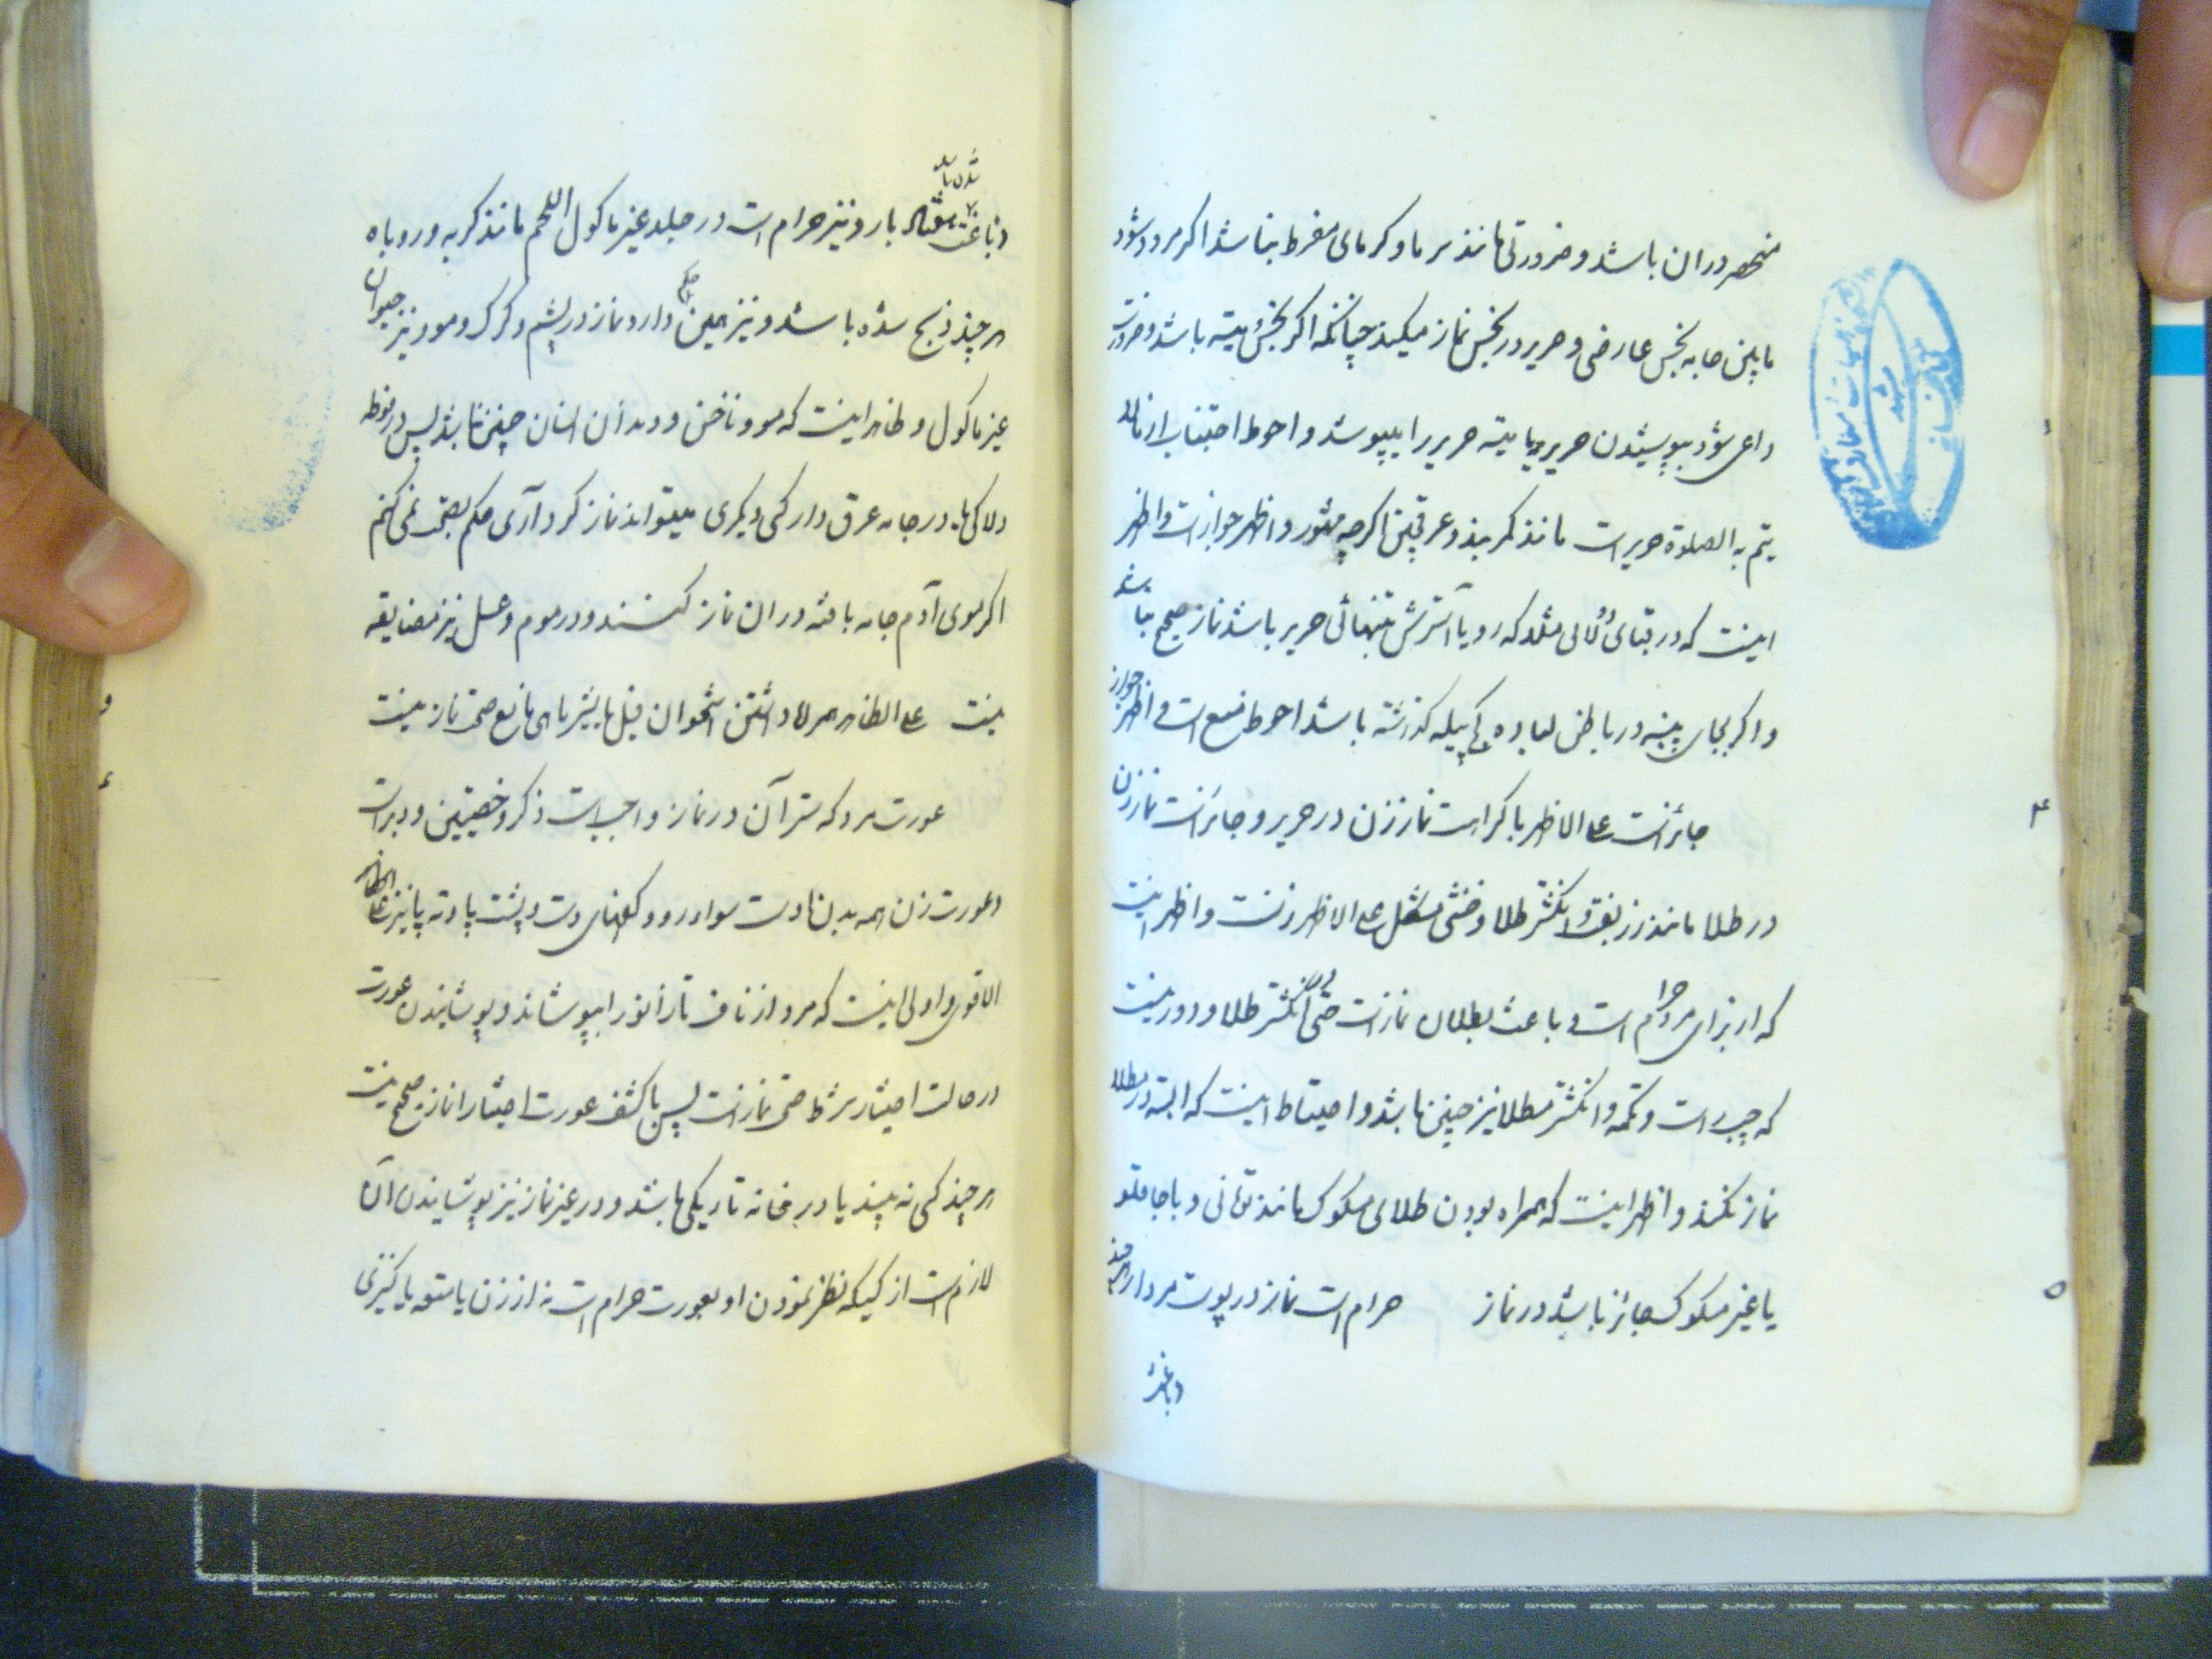 منحصر دران باشد و ضرورتی مانند سرما و کرمای مفرط نباشد اکر مردد شود
مابین جامه نجس عارضی و حریر در نجس نماز میکند چنانکه اکر نجس و میته باشد و ضرورت
داعی شود بپوشیدن حریر یا میته حریر را بپوشد و احوط اجتناب از مالا
یتم به الصلوة حریر است مانند کمربند و عرقچین اکرچه و اظهر جواز است و اظهر
اینست که در قبای که رو یا آسترش بتنهائی حریر باشد نماز صحیح نباشد
و اکر بجای پنبه در باطن لباده کج پیله کذشته باشد احوط منع است و اظهر جواز
جائز است علی الاظهر با کراهت نماز زن در حریر و جائز است نماز زن
در طلا مانند زربفت و انکشتر طلا و خنثی مشکل علی الاظهر زنست و اظهر اینست
که از برای مرد حرام است و باعث بطلان نماز است حتی در انکشتر طلا و دور نیست
که چپ راست و تکمه و انکشتر مطلا نیز چنین باشد و احتیاط اینست که البته در مطلا
نماز نکند و اظهر اینست که همراه بودن طلای مسکوک مانند و باجاقلو
یا غیر مسکوک جائز باشد در نماز حرام است نماز در پوست مردار هرچند
دباغت
دباغت شده باشد بار و نیز حرام است در جلد غیر ماکول اللحم مانند کربه و روباه
هرچند ذبح شده باشد و نیز همین حکم دارد نماز در پشم و کرک و مو و نیز حیوان
غیر ماکول و ظاهر اینست که مو و ناخن و دندان انسان چنین نباشد پس در فوطه
دلاکی یا در جامه عرق دار کسی دیکری میتواند نماز کرد آری حکم بصحت نمی کنم
اکر موی آدم جامه بافته دران نماز کنند و در موم و عسل نیز مضایقه
نیست علی الظاهر همراه داشتن استخوان فیل یا شیر ماهی مانع صحت نماز نیست
عورت مرد که ستر آن در نماز واجب است ذکر و خصیتین و دبر است
و عورت زن همه بدن اوست سوای رو و کفهای دست و پشت پا و ته پا نیز علی الظاهر
الاقوی و اولی اینست که مرد از ناف تا زانو را بپوشاند و پوشانیدن عورت
در حالت اختیار شرط صحت نماز است پس با کشف عورت اختیارا نماز صحیح نیست
هرچند کسی نه بیند یا در خانه تاریکی باشد و در غیر نماز نیز پوشانیدن آن
لازم است از کسیکه نظر نمودن او بعورت حرام است نه از زن یا متعه یا کنیزی
۴
۵